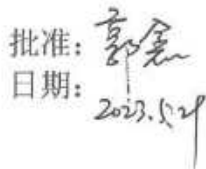 批准：郭
日期：2023.5.29